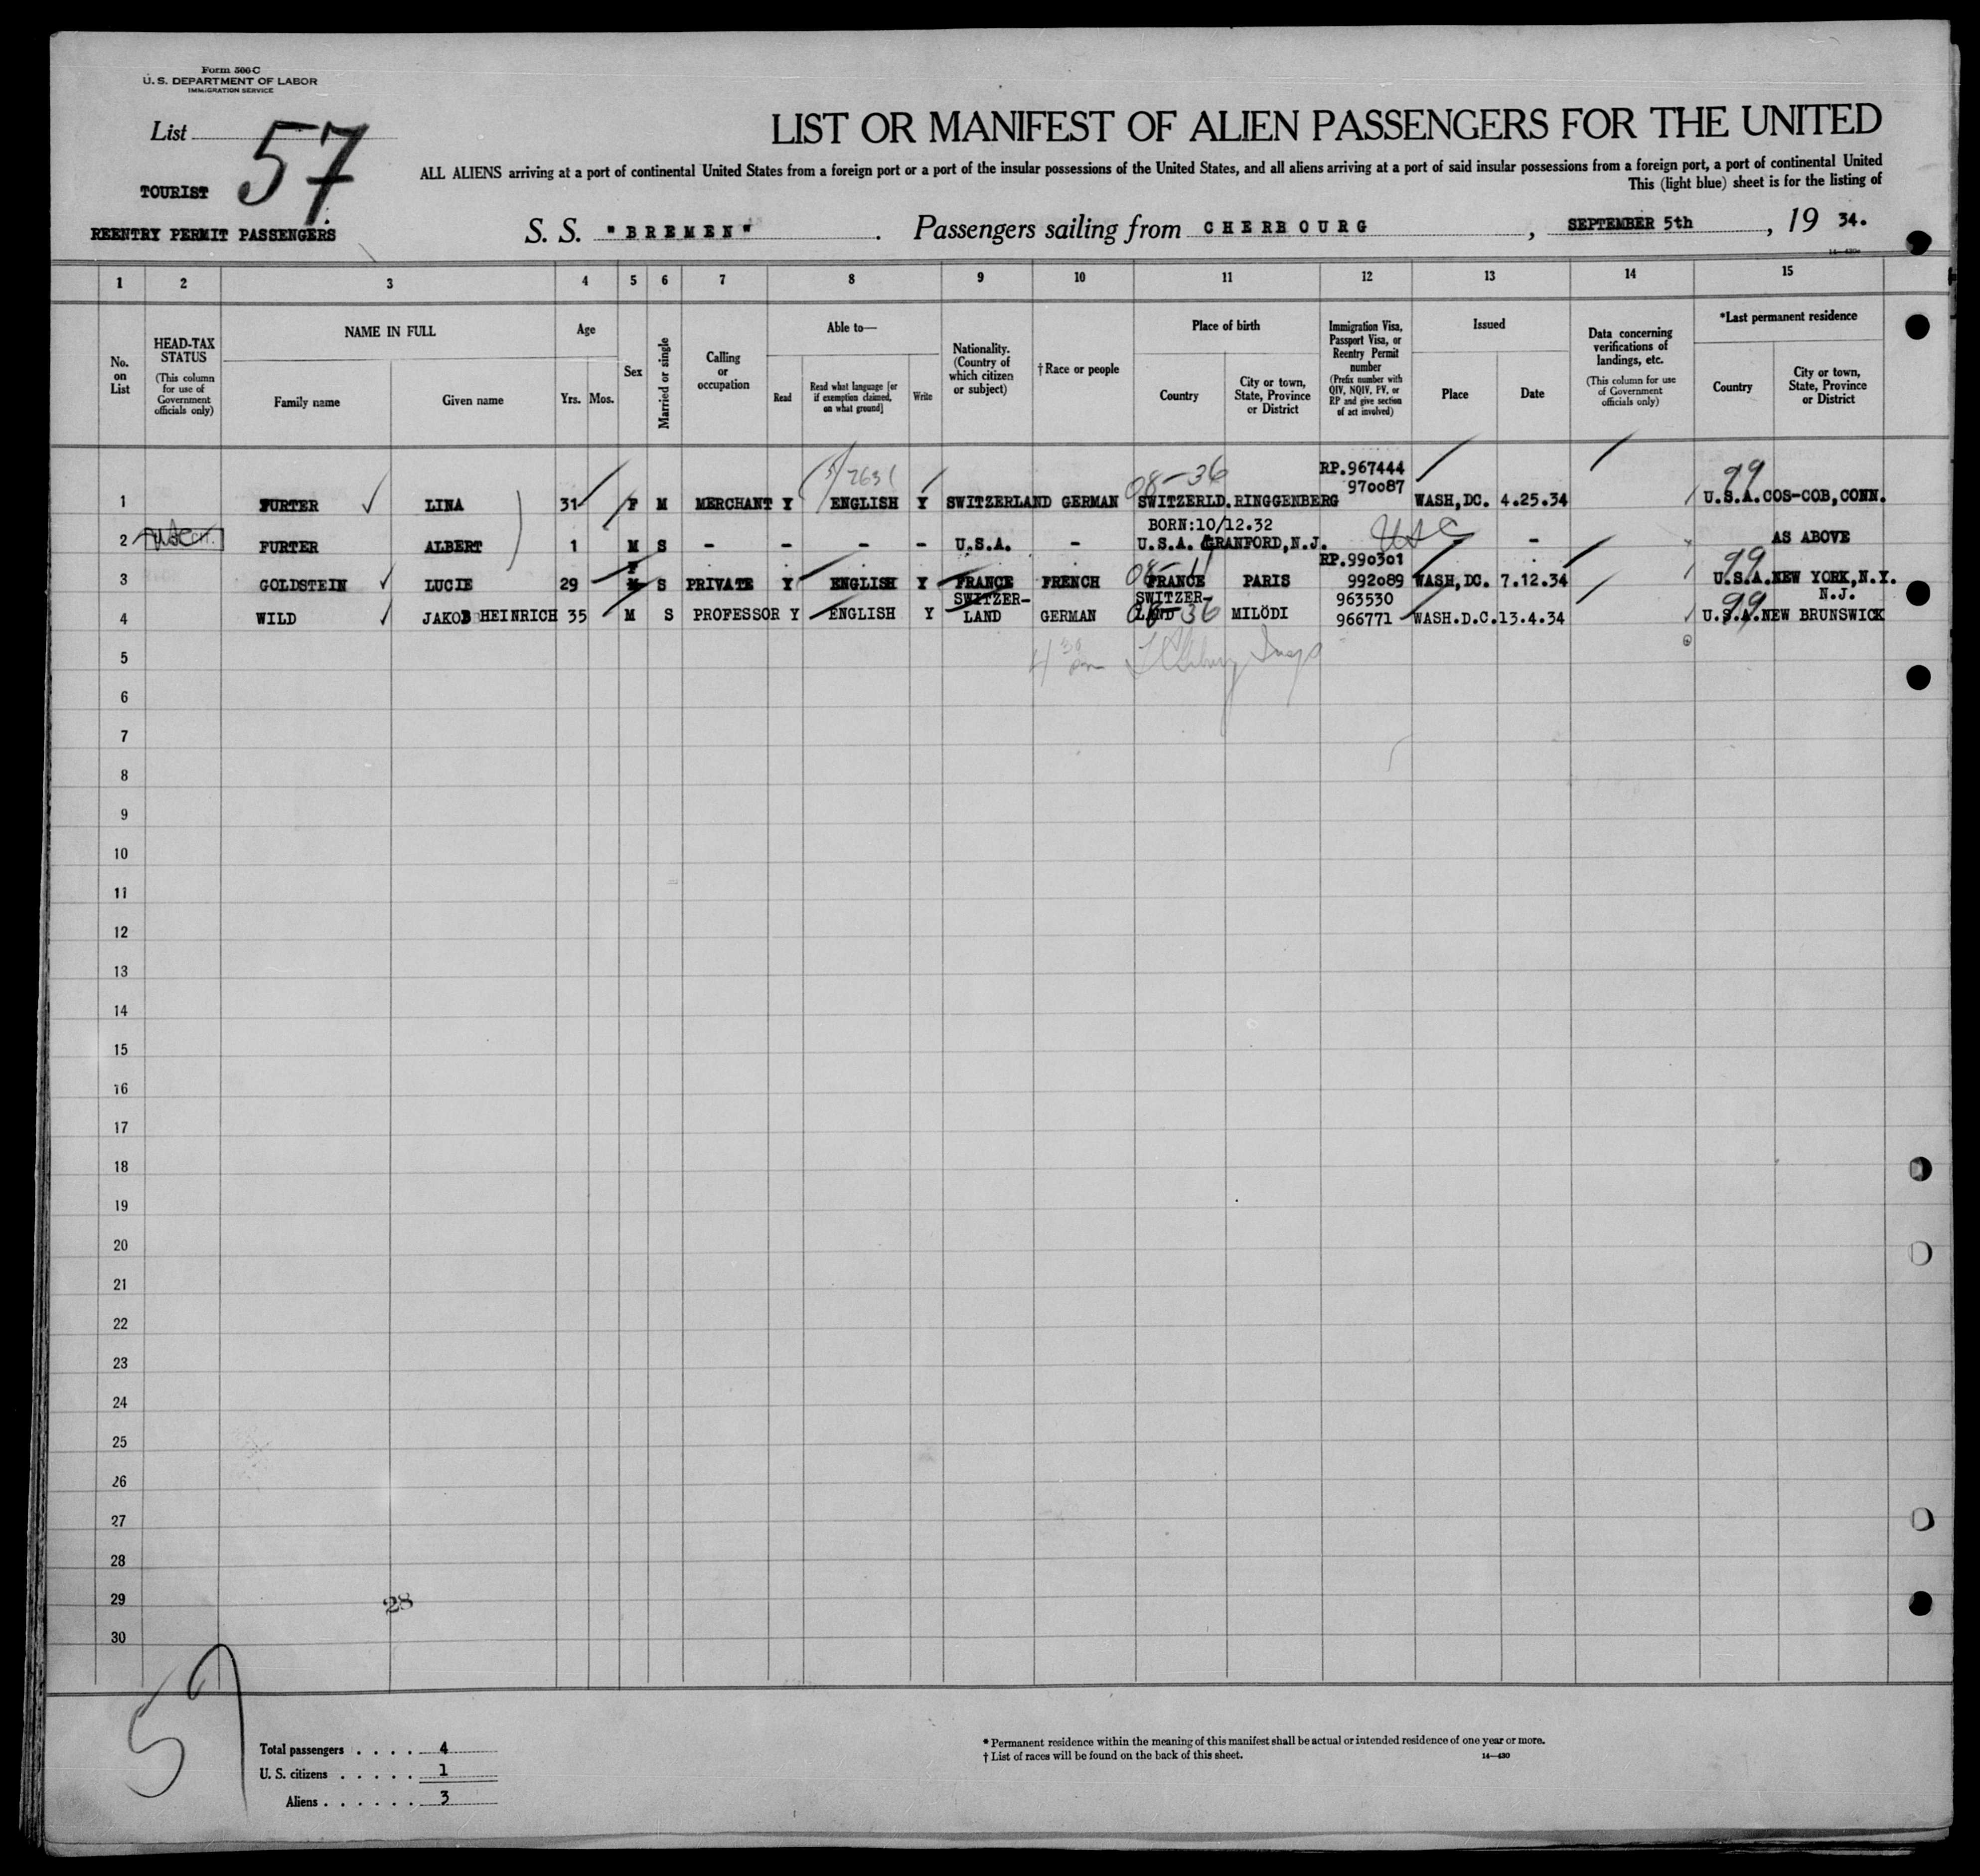 Form 500 C
U. S. DEPARTMENT OF LABOR
IMMIGRATION SERVICE
List 57
TOURIST
REENTRY PERMIT PASSENGERS
LIST OR MANIFEST OF ALIEN PASSENGERS FOR THE UNITED
ALL ALIENS arriving at a port of continental United States from a foreign port or a port of the insular possessions of the United States, and all aliens arriving at a port of said insular possessions from a foreign port, a port of continental United
This (light blue) sheet is for the listing of
S. S. "BREMEN". Passengers sailing from CHERBOURG, SEPTEMBER 5th, 19 34.
1 2 3 4 5 6 7 8 9 10 11 12 13 14 15
No. on List
HEAD-TAX STATUS (This column for use of Government officials only)
NAME IN FULL
Family name
Given name
Age
Yrs. Mos.
Sex
Married or single
Calling or occupation
Able to—
Read
Read what language [or if exemption claimed, on what ground]
Write
Nationality. (Country of which citizen or subject)
†Race or people
Place of birth
Country
City or town, State, Province or District
Immigration Visa, Passport Visa, or Reentry Permit number (Prefix number with QIV, NQIV, PV, or RP and give section of act involved)
Issued
Place
Date
Data concerning verifications of landings, etc. (This column for use of Government officials only)
*Last permanent residence
Country
City or town, State, Province or District
08-36 RP.967444 99
970087
1 FURTER LINA 31 F M MERCHANT Y ENGLISH Y SWITZERLAND GERMAN SWITZERLD. RINGGENBERG WASH,DC. 4.25.34 U.S.A. COS-COB, CONN.
BORN:10/12.32
2 FURTER ALBERT 1 M S - - - - U.S.A. - U.S.A. GRANFORD, N.J. USC - AS ABOVE
F 08-11 RP.990301 99
3 GOLDSTEIN LUCIE 29 M S PRIVATE Y ENGLISH Y FRANCE FRENCH FRANCE PARIS 992089 WASH,DC. 7.12.34 U.S.A. NEW YORK, N.Y.
SWITZER- SWITZER- 963530 N.J.
4 WILD JAKOB HEINRICH 35 M S PROFESSOR Y ENGLISH Y LAND GERMAN LAND 08-36 MILÖDI 966771 WASH.D.C. 13.4.34 99 U.S.A. NEW BRUNSWICK
5
6
7
8
9
10
11
12
13
14
15
16
17
18
19
20
21
22
23
24
25
26
27
28
29
28
30
57
Total passengers . . . . 4
U. S. citizens . . . . . 1
Aliens . . . . . . 3
* Permanent residence within the meaning of this manifest shall be actual or intended residence of one year or more.
† List of races will be found on the back of this sheet. 14—430